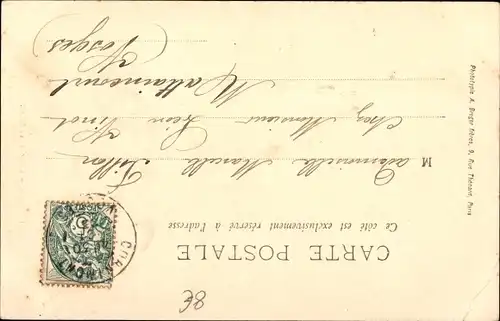 CARTE POSTALE
Ce côté est exclusivement réservé à l'adresse
Mademoiselle Marcelle
Chez Monsieur Léon
Mattaincourt
(Vosges)
Phototypie A. Breger frères, 9, Rue Thénard, Paris
8€